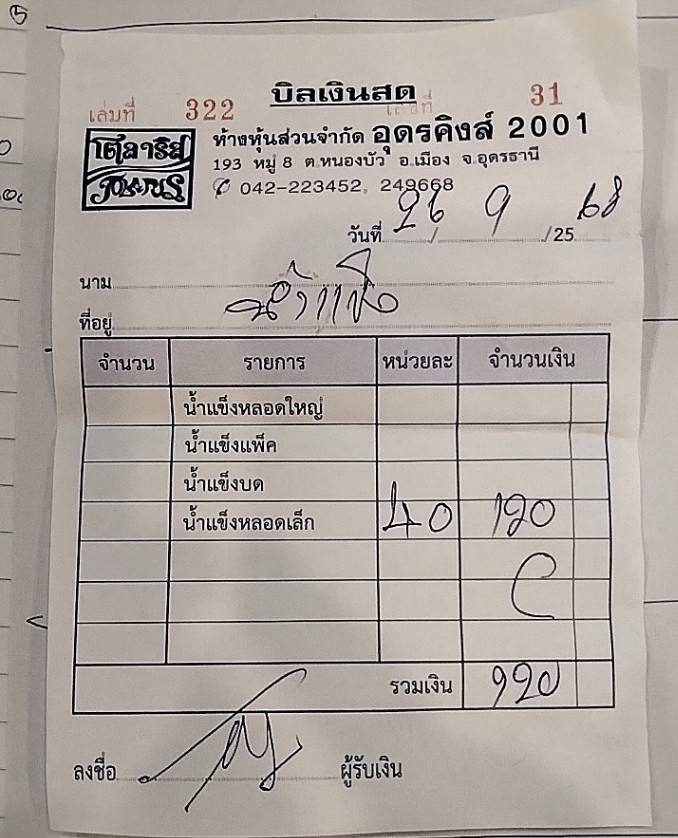 บิลเงินสด
เล่มที่ 322 เลขที่ 31
ห้างหุ้นส่วนจำกัด อุดรคิงส์ 2001
193 หมู่ 8 ต.หนองบัว อ.เมือง จ.อุดรธานี
042-223452, 249668
วันที่ 26 / 9 /25 68
นาม
ที่อยู่
จำนวน รายการ หน่วยละ จำนวนเงิน
น้ำแข็งหลอดใหญ่
น้ำแข็งแพ็ค
น้ำแข็งบด
น้ำแข็งหลอดเล็ก 40 120
รวมเงิน
ลงชื่อ ผู้รับเงิน